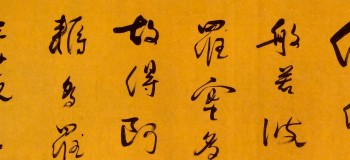 般若波
羅蜜多
故得阿
耨多羅
三藐